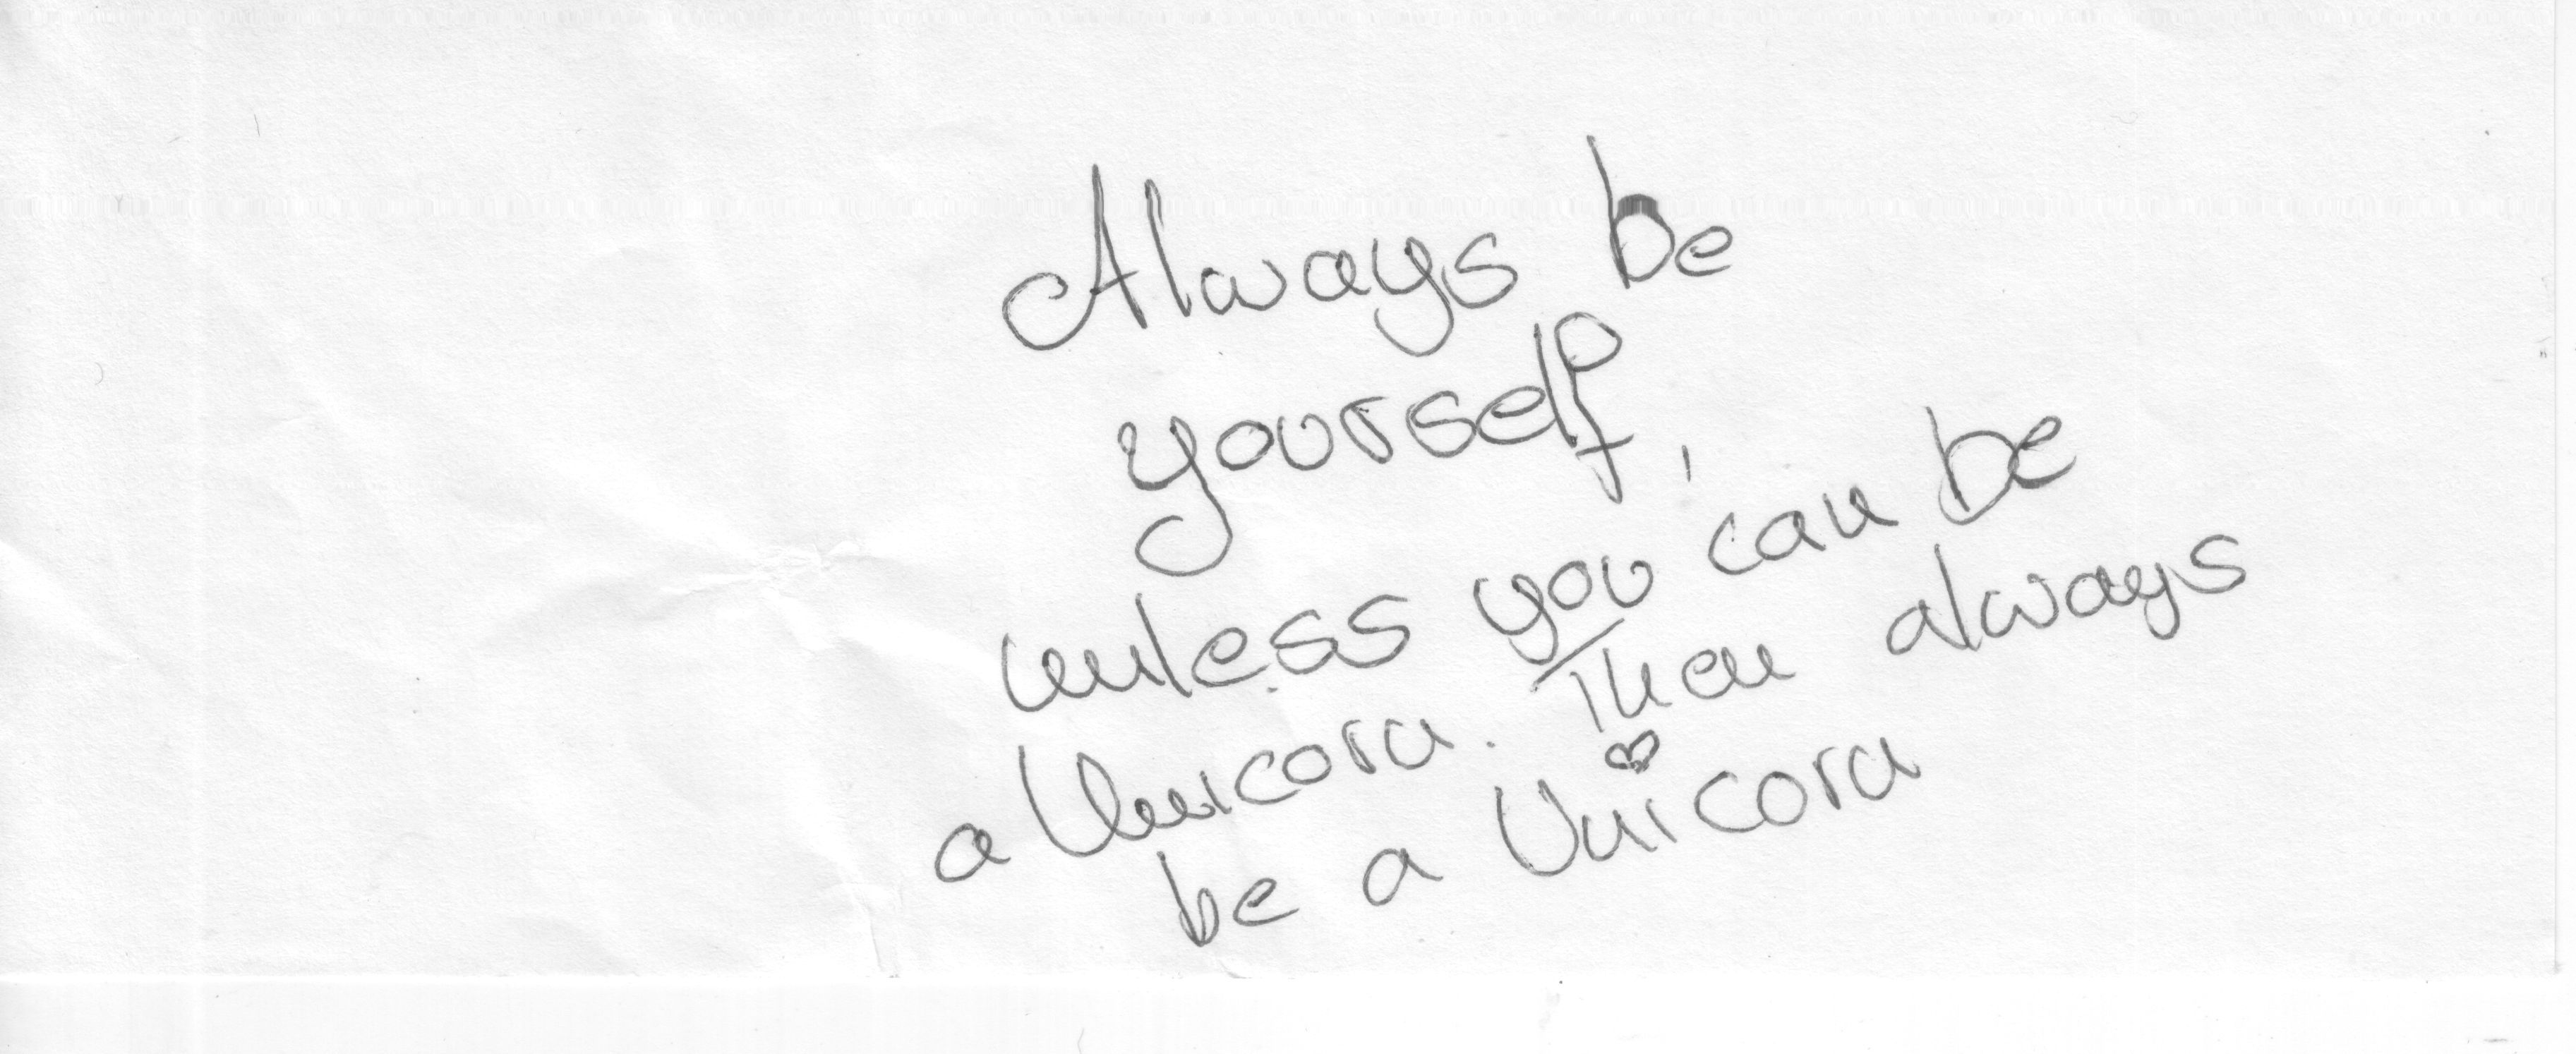 Always be
yourself,
unless you can be
a Unicorn. Then always
be a Unicorn